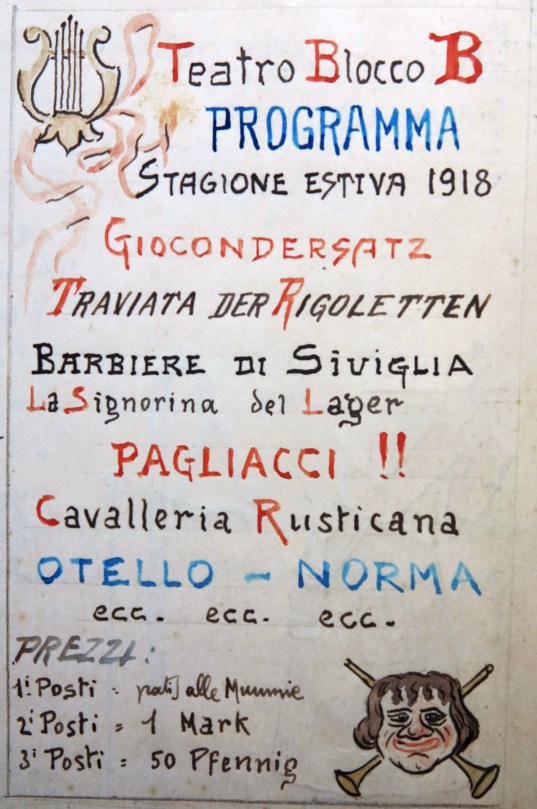 Teatro Blocco B
PROGRAMMA
STAGIONE ESTIVA 1918
GIOCONDERSATZ
TRAVIATA DER RIGOLETTEN
BARBIERE DI SIVIGLIA
La Signorina del Lager
PAGLIACCI !!
Cavalleria Rusticana
OTELLO - NORMA
ecc. ecc. ecc.
PREZZI:
1i Posti = alle Mummie
2i Posti = 1 Mark
3i Posti = 50 Pfennig